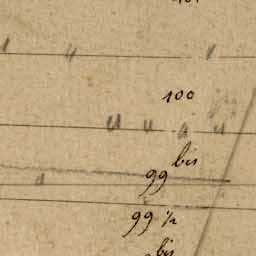 100
bis
99
99 ½
bis